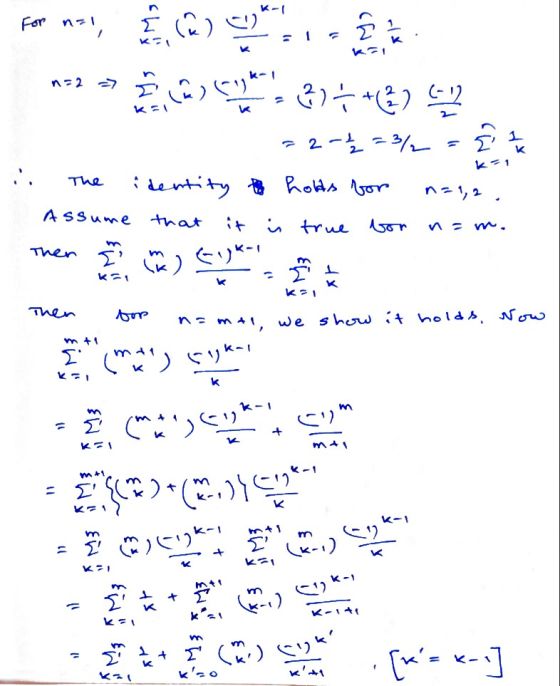 For n=1, \sum_{k=1}^{n} \binom{n}{k} \frac{(-1)^{k-1}}{k} = 1 = \sum_{k=1}^{n} \frac{1}{k}.
n=2 ⇒ \sum_{k=1}^{n} \binom{n}{k} \frac{(-1)^{k-1}}{k} = \binom{2}{1} \frac{1}{1} + \binom{2}{2} \frac{(-1)}{2}
= 2 - \frac{1}{2} = 3/2 = \sum_{k=1}^{n} \frac{1}{k}
∴ The identity holds for n=1,2.
Assume that it is true for n=m.
Then \sum_{k=1}^{m} \binom{m}{k} \frac{(-1)^{k-1}}{k} = \sum_{k=1}^{m} \frac{1}{k}
Then for n=m+1, we show it holds. Now
\sum_{k=1}^{m+1} \binom{m+1}{k} \frac{(-1)^{k-1}}{k}
= \sum_{k=1}^{m} \binom{m+1}{k} \frac{(-1)^{k-1}}{k} + \frac{(-1)^{m}}{m+1}
= \sum_{k=1}^{m+1} \{\binom{m}{k} + \binom{m}{k-1}\} \frac{(-1)^{k-1}}{k}
= \sum_{k=1}^{m} \binom{m}{k} \frac{(-1)^{k-1}}{k} + \sum_{k=1}^{m+1} \binom{m}{k-1} \frac{(-1)^{k-1}}{k}
= \sum_{k=1}^{m} \frac{1}{k} + \sum_{k=1}^{m+1} \binom{m}{k-1} \frac{(-1)^{k-1}}{k-1+1}
= \sum_{k=1}^{m} \frac{1}{k} + \sum_{k'=0}^{m} \binom{m}{k'} \frac{(-1)^{k'}}{k'+1} . [k' = k-1]